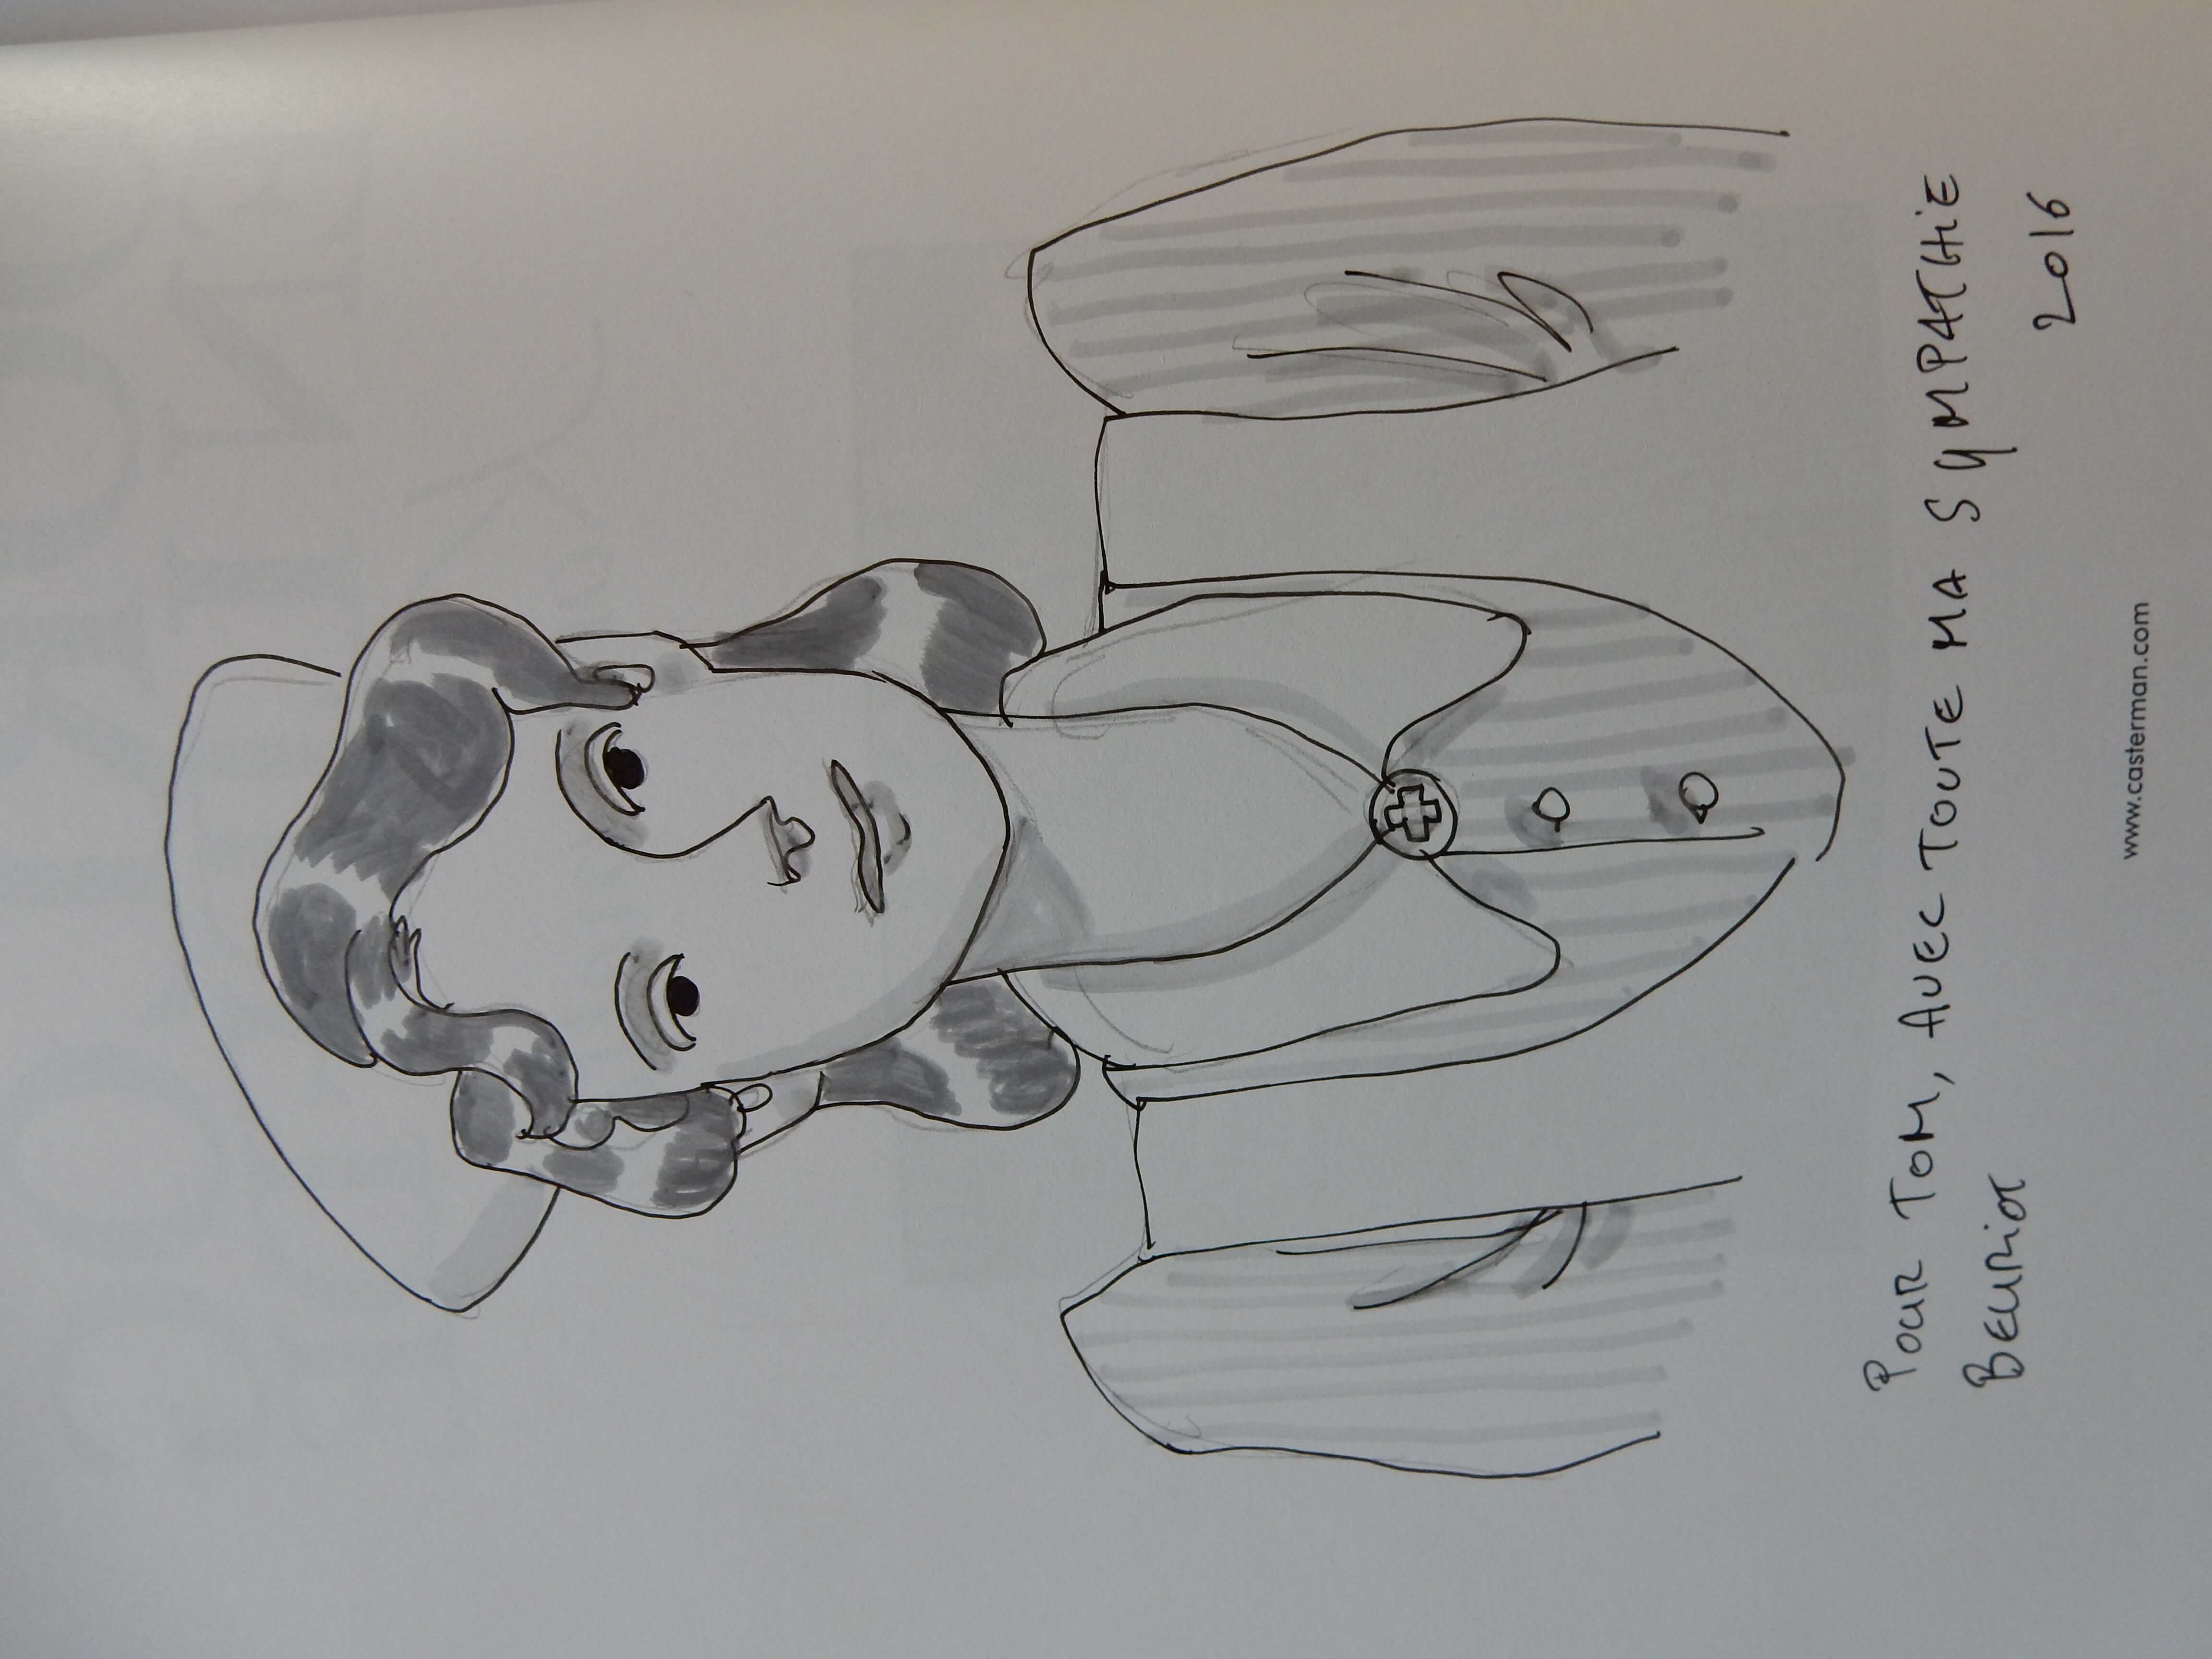 POUR TOM, AVEC TOUTE MA SYMPATHIE
BEURIOT
2016
www.casterman.com